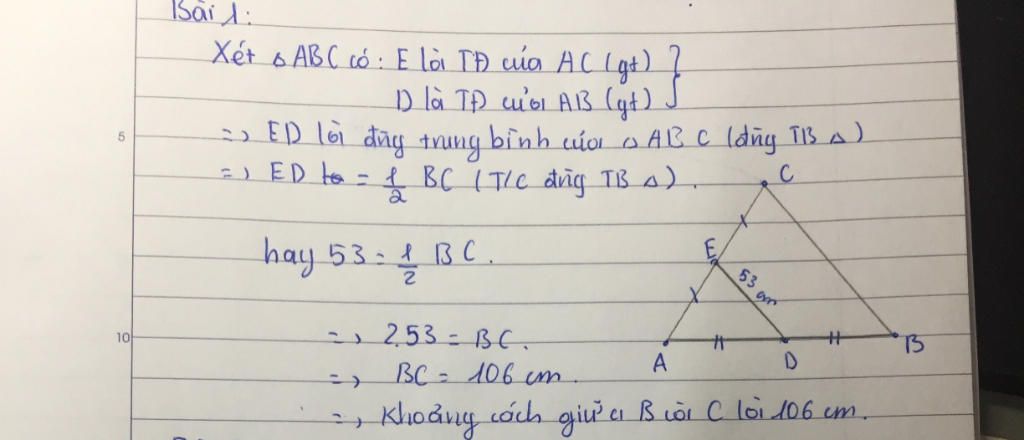 Bài 1:
Xét △ABC có: E là TĐ của AC (gt)
D là TĐ của AB (gt)
=> ED là đg̃ trung bình của △ ABC (đg̃ TB △)
=> ED = 1/2 BC (T/C đg̃ TB △).
hay 53 = 1/2 BC.
=> 2.53 = BC.
=> BC = 106 cm.
=> Khoảng cách giữa B và C là 106 cm.
C
E
53 cm
A
D
B
5
10